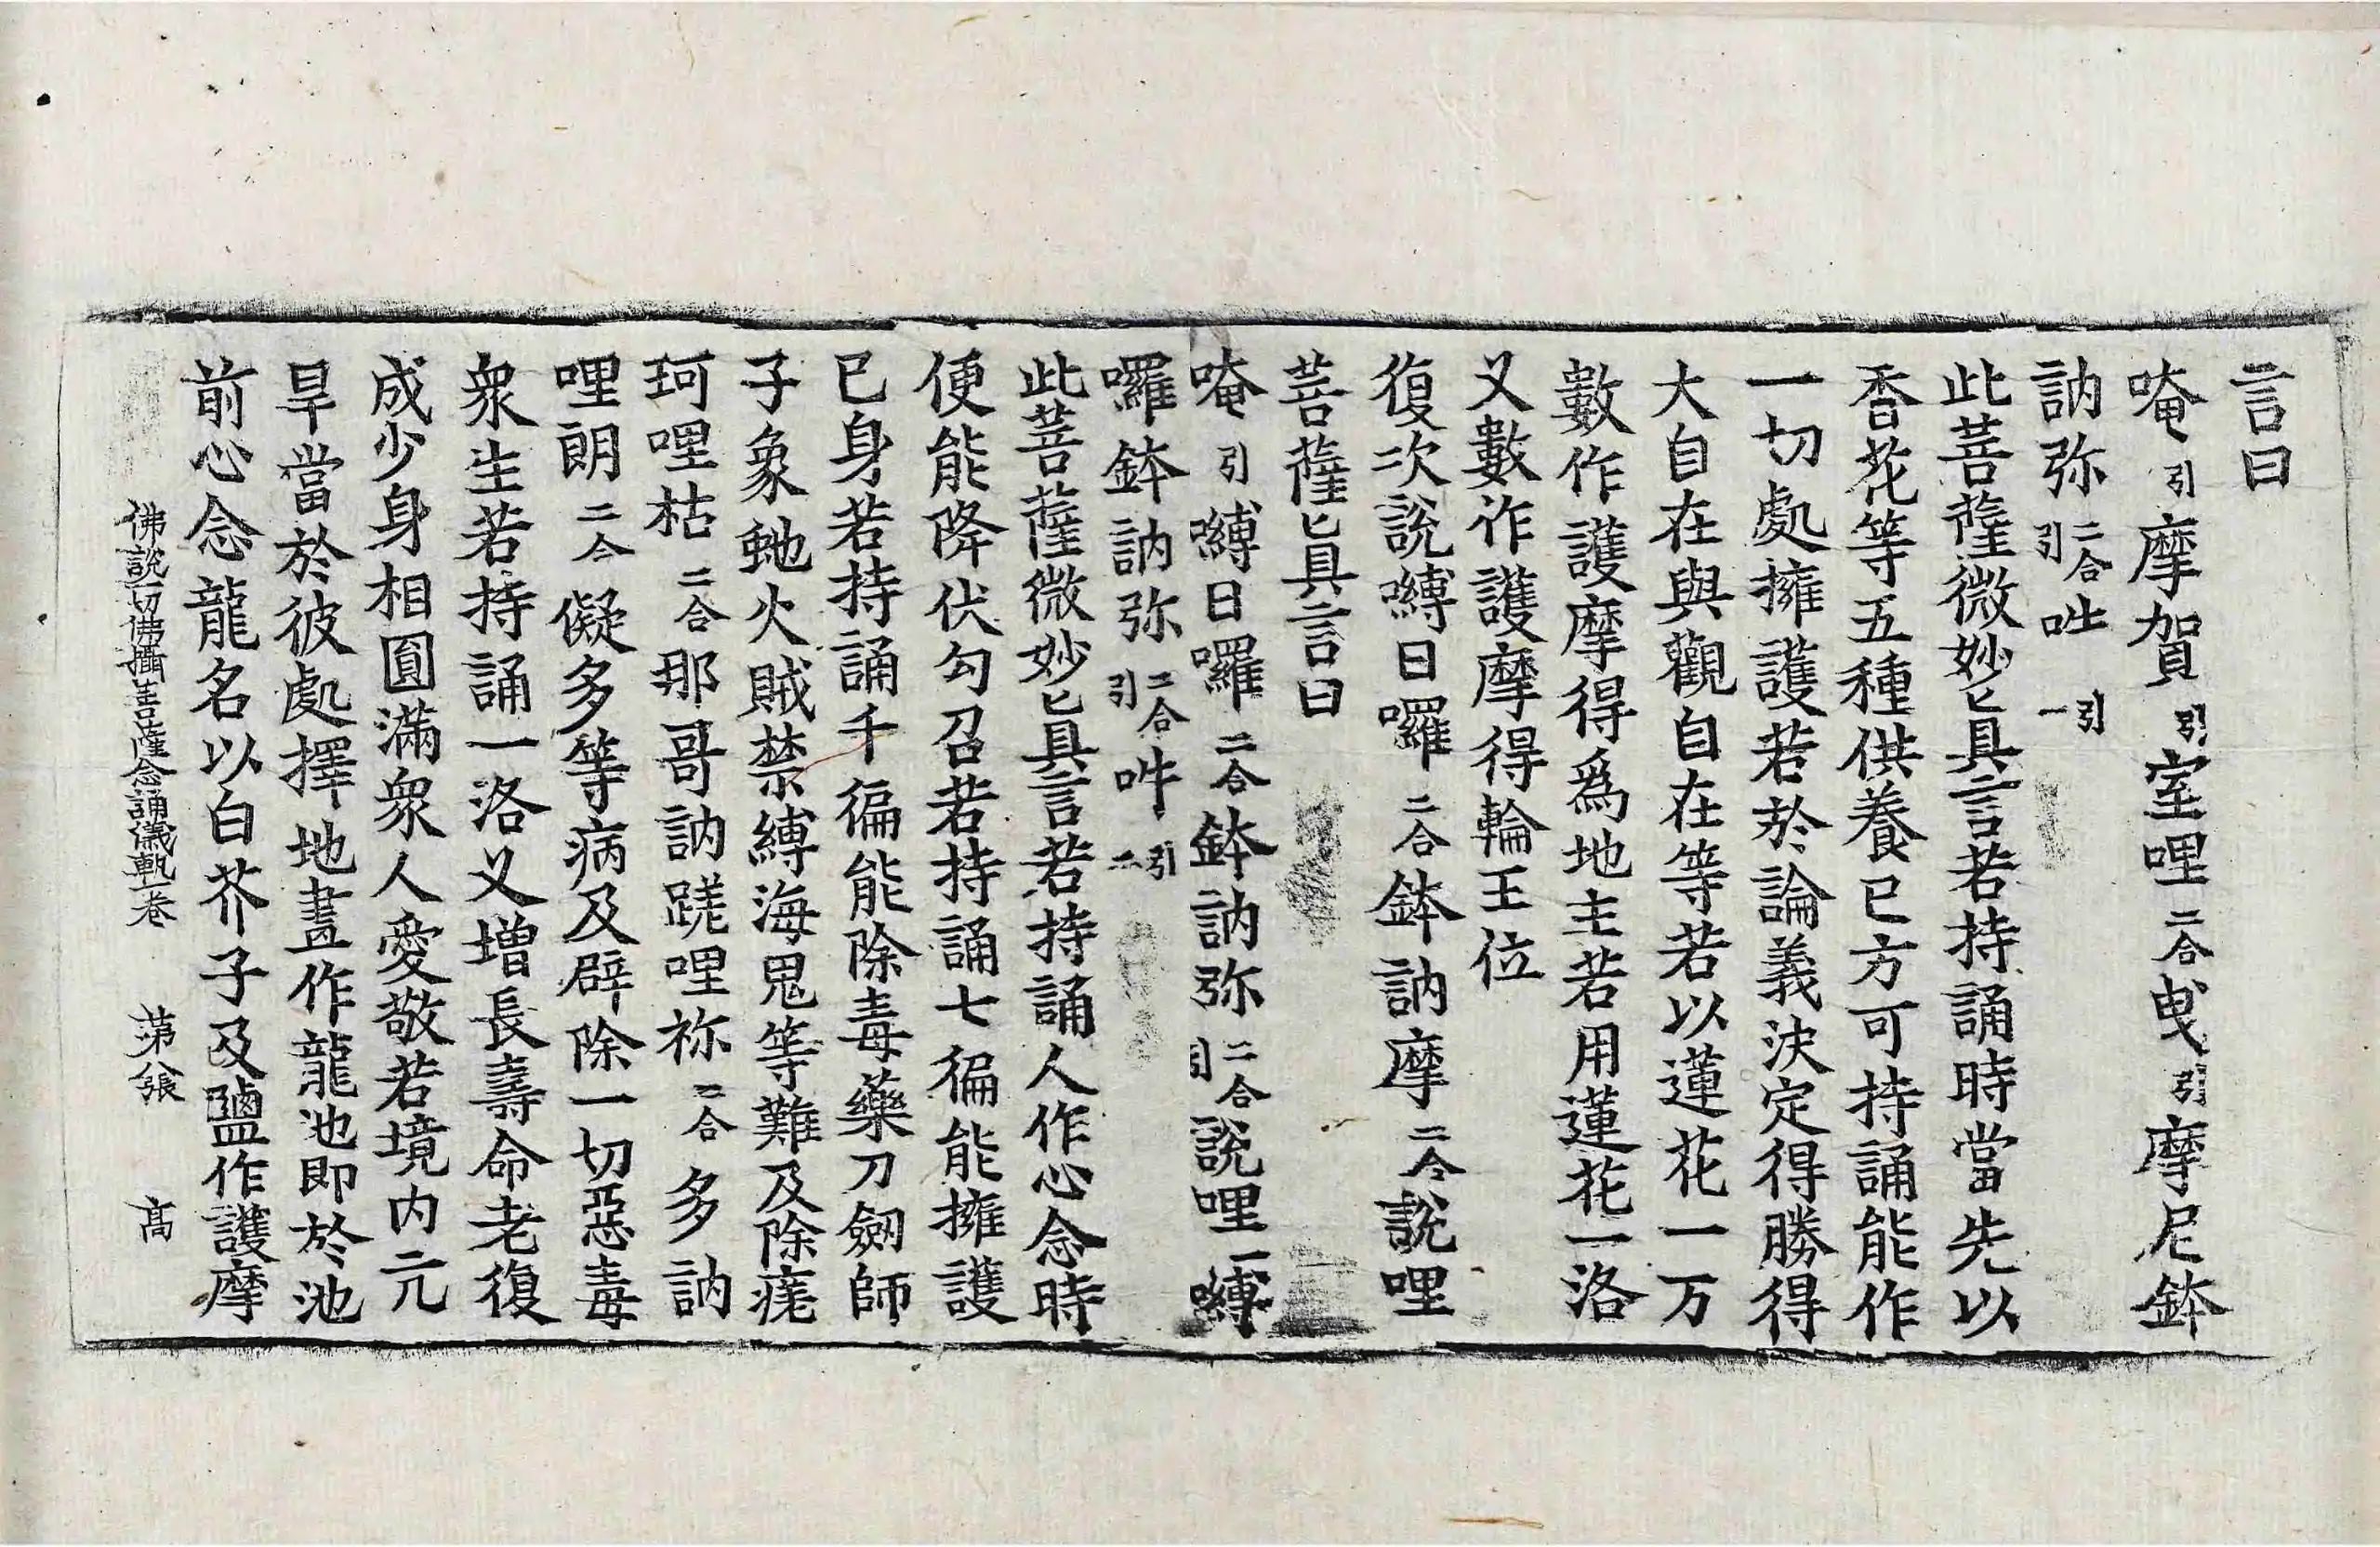 言曰
唵引摩賀引室哩二合曳引摩尼鉢
訥弥二合引吽引一
此菩薩微妙真言若持誦時當先以
香花等五種供養已方可持誦能作
一切處擁護若於論義決定得勝得
大自在與觀自在等若以蓮花一万
數作護摩得爲地主若用蓮花一洛
又數作護摩得輪王位
復次說嚩日囉二合鉢訥摩二合說哩
菩薩真言曰
唵引嚩日囉二合鉢訥弥二合引說哩一嚩
囉鉢訥弥二合引吽引二
此菩薩微妙真言若持誦人作心念時
便能降伏勾召若持誦七徧能擁護
已身若持誦千徧能除毒藥刀劒師
子象虵火賊禁縛海鬼等難及除㾗
珂哩枯二合那哥訥蹉哩祢二合多訥
哩朗二合儗多等病及辟除一切惡毒
衆生若持誦一洛又增長壽命老復
成少身相圓滿衆人愛敬若境内亢
旱當於彼處擇地畫作龍池即於池
前心念龍名以白芥子及鹽作護摩
佛說一切佛攝菩薩念誦儀軌一卷 第八張 髙